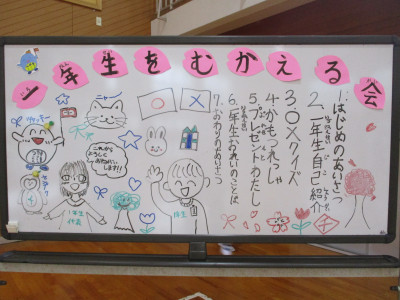 一年生をむかえる会
1.はじめのあいさつ
2.一年生自己紹介
3.〇×クイズ
4.かもつれっしゃ
5.プレゼントわたし
6.一年生お礼のことば
7.おわりのあいさつ
ニャー
これから
よろしく
おねがい
します!!
1年生
代表